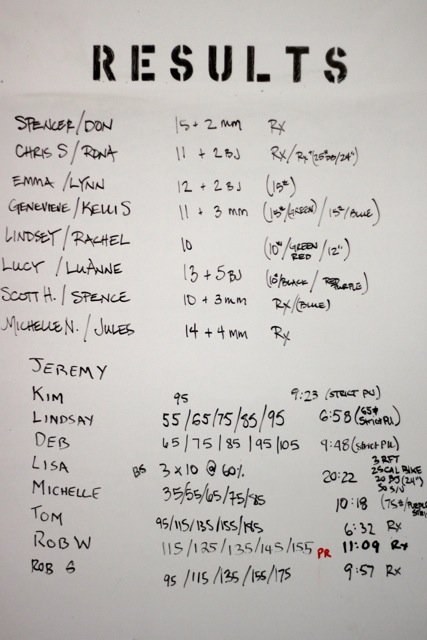 RESULTS
SPENCER/DON 15 + 2 mm Rx
CHRIS S/RONA 11 + 2 BJ Rx/Rx(25#DB/24")
EMMA/LYNN 12 + 2 BJ (15#)
GENEVIEVE/KELLIS 11 + 3 mm (15#/GREEN)/15#/BLUE)
LINDSEY/RACHEL 10 (10#/GREEN RED/12")
LUCY/LUANNE 13 + 5 BJ (10#/BLACK/PURPLE)
SCOTT H./SPENCE 10 + 3 mm Rx/(BLUE)
MICHELLE N./JULES 14 + 4 mm Rx
JEREMY
KIM 95 9:23 (STRICT PU)
LINDSAY 55/65/75/85/95 6:58 (55# STRICT PU)
DEB 65/75/85/95/105 9:48 (STRICT PU)
LISA BS 3 x 10 @ 60% 20:22 3 RFT 25CAL BIKE 20 BJ (24") 50 S/U
MICHELLE 35/55/65/75/85 10:18 (75#/PURPLE
TOM 95/115/135/155/165 6:32 Rx
ROB W 115/125/135/145/155 PR 11:09 Rx
ROB S 95/115/135/155/175 9:57 Rx